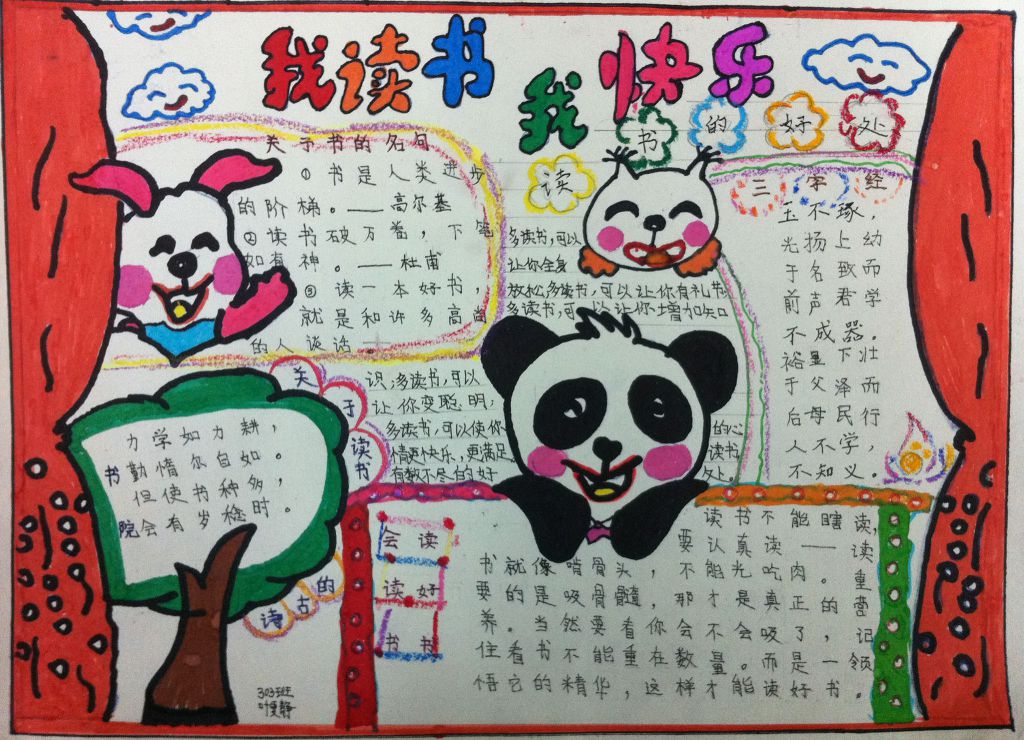 我读书
我快乐
关于书的名句
①书是人类进步
的阶梯。——高尔基
②读书破万卷，下笔
如有神。——杜甫
③读一本好书，
就是和许多高尚
的人谈话。
读书的好处
多读书，可以
让你全身
放松，多读书，可以让你有礼节，
多读书，可以让你增加知
识，多读书，可以
让你变聪明，
多读书，可以使你的心
情更快乐，更满足，读书
有数不尽的好处。
三字经
玉不琢，
光扬上幼
于名致而
前声君学
不成器。
裕下壮
于父泽而
后母民行
人不学，
不知义。
关于读书
的古诗
力学如力耕，
勤惰尔自如。
但使书种多，
会有岁稔时。
书院
会读
读好
书书
读书不能瞎读，
要认真读——读
书就像啃骨头，不能光吃肉。重
要的是吸骨髓，那才是真正的营
养。当然要看你会不会吸了，记
住看书不能重在数量。而是一领
悟它的精华，这样才能读好书。
303班
叶更静